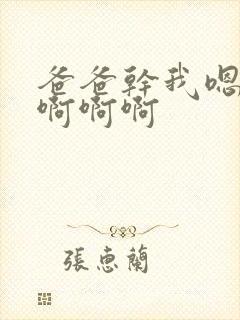 爸爸幹我嗯
啊啊啊
張惠蘭